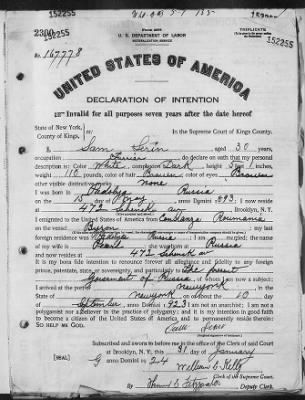 152255
Form 2203
U. S. DEPARTMENT OF LABOR
NATURALIZATION SERVICE
TRIPLICATE
152255
No. 167778
UNITED STATES OF AMERICA
DECLARATION OF INTENTION
Invalid for all purposes seven years after the date hereof
State of New York,
County of Kings,
In the Supreme Court of Kings County.
I, Sam Serin, aged 30 years,
occupation Furrier, do declare on oath that my personal
description is: Color White, complexion Dark, height 5 feet inches,
weight 110 pounds, color of hair Brown, color of eyes Brown
other visible distinctive marks none
I was born in Russia
on the 15 day of May, anno Domini 1893; I now reside
at 472 Schenck av Brooklyn, N. Y.
I emigrated to the United States of America from Constanza Roumania
on the vessel Byron
foreign residence was Russia; I am married; the name of my
wife is Pearl; she was born in Russia
and now resides at 472 Schenck av
It is my bona fide intention to renounce forever all allegiance and fidelity to any foreign
prince, potentate, state, or sovereignty, and particularly to The present
Government of Russia, of whom I am now a subject;
I arrived at the port of New York, in the
State of New York, on or about the 10 day
of September, anno Domini 1923; I am not an anarchist; I am not a
polygamist nor a believer in the practice of polygamy; and it is my intention in good faith
to become a citizen of the United States of America and to permanently reside therein:
SO HELP ME GOD.
Subscribed and sworn to before me in the office of the Clerk of said Court
at Brooklyn, N. Y., this 31 day of January
anno Domini 1924
[SEAL]
William E. Kelly
Clerk of the Supreme Court.
Deputy Clerk.